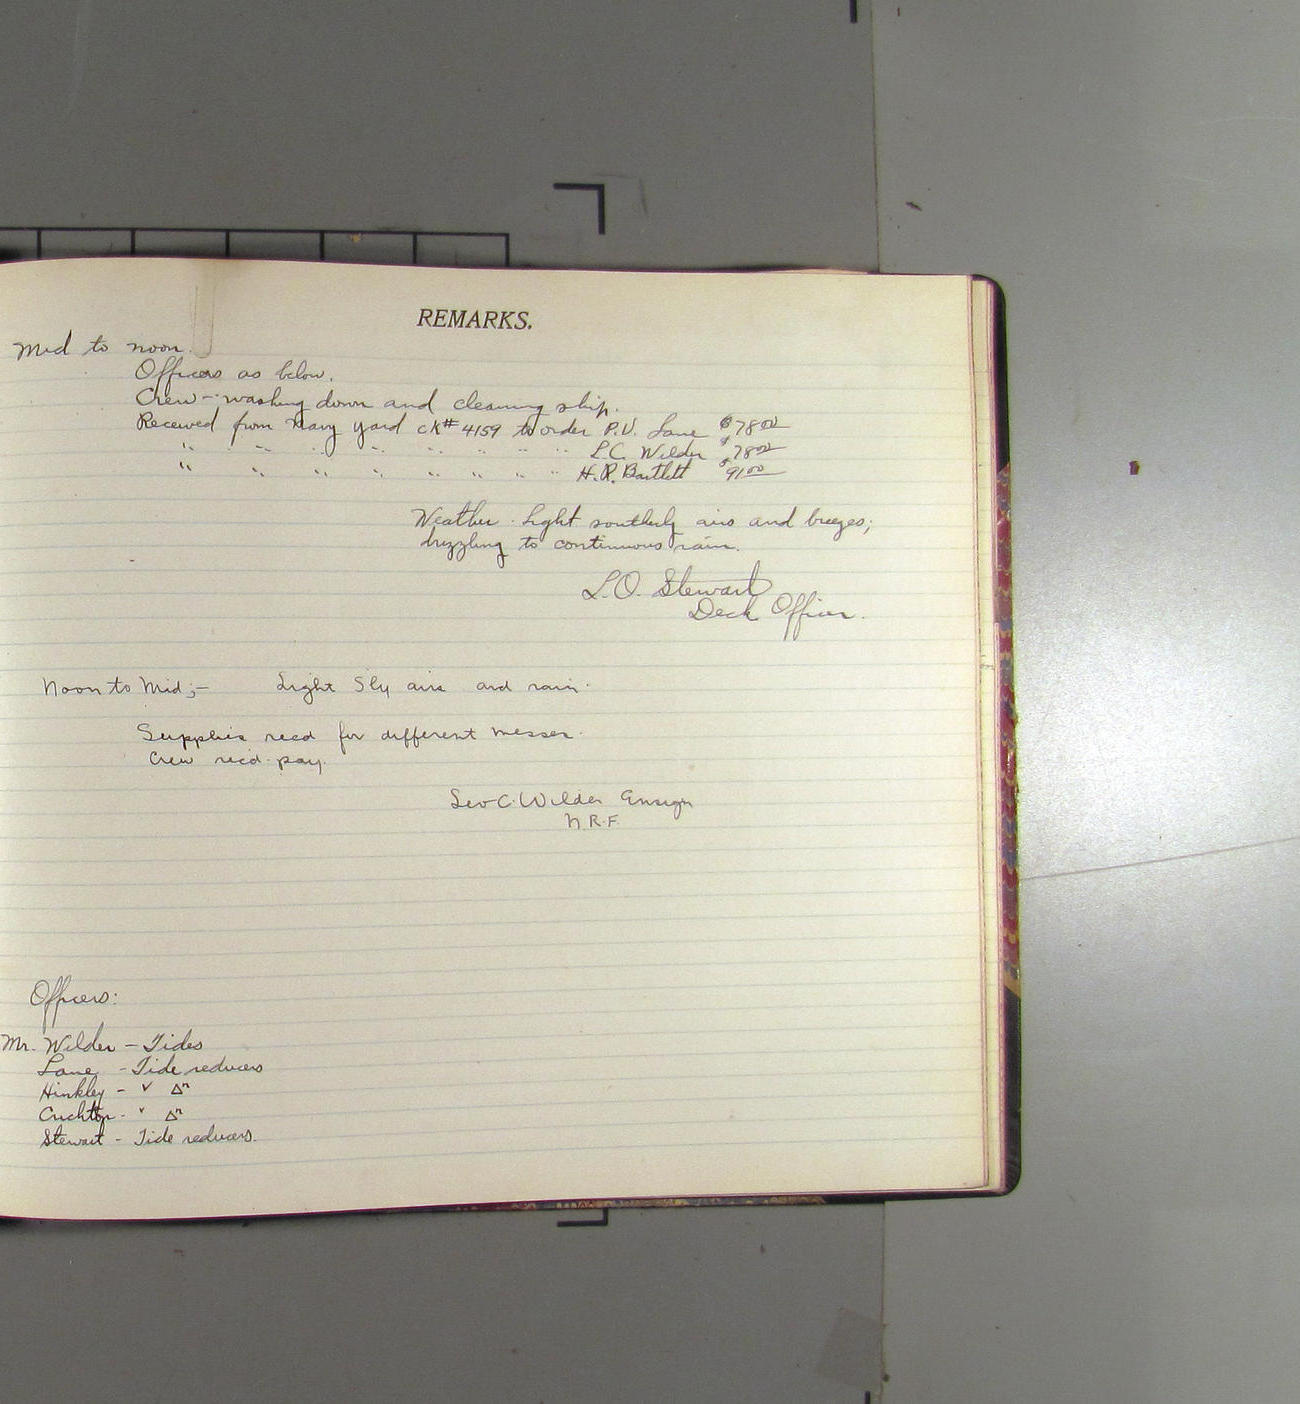 REMARKS.
Mid to noon.
Officers as below.
Crew - washing down and cleaning ship.
Received from Navy Yard ck# 4159 to order P.V. Lane $78.00
" " " " " " " " L.C. Wilder $78.00
" " " " " " " " H.R. Bartlett $91.00
Weather - Light southerly airs and breezes;
drizzling to continuous rain.
L.O. Stewart
Deck Officer.
Noon to Mid;- Light Sly airs and rain.
Supplies recd for different messes.
Crew recd pay.
Leo C. Wilder Ensign
N.R.F.
Officers:
Mr. Wilder - Tides
Lane - Tide reducers
Hinkley - " Δn
Crichton - " Δn
Stewart - Tide reducers.